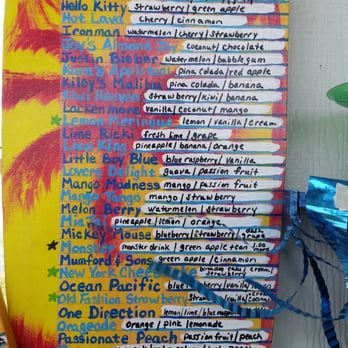 Hello Kitty strawberry/green apple
Hot Lava cherry/cinnamon
Ironman watermelon/cherry/strawberry
Joy's Almond Joy coconut/chocolate
Justin Bieber watermelon/bubblegum
pina colada/red apple
Kiley's Malibu pina colada/banana
strawberry/kiwi/banana
Lackenmore vanilla/coconut/mango
Lemon Meringue lemon/vanilla/cream
Lime Ricki fresh lime/grape
Lion King pineapple/banana/orange
Little Boy Blue blue raspberry/vanilla
Lovers Delight guava/passion fruit
Mango Madness mango/passion fruit
Mango Tango mango/strawberry
Melon Berry watermelon/strawberry
pineapple/lemon/orange
Mickey Mouse blueberry/strawberry
Monster monster drink/green apple
Mumford & Sons green apple/cinnamon
New York Cheesecake
Ocean Pacific
Old Fashion Strawberry
One Direction
Orangeade orange/pink lemonade
Passionate Peach passion fruit/peach